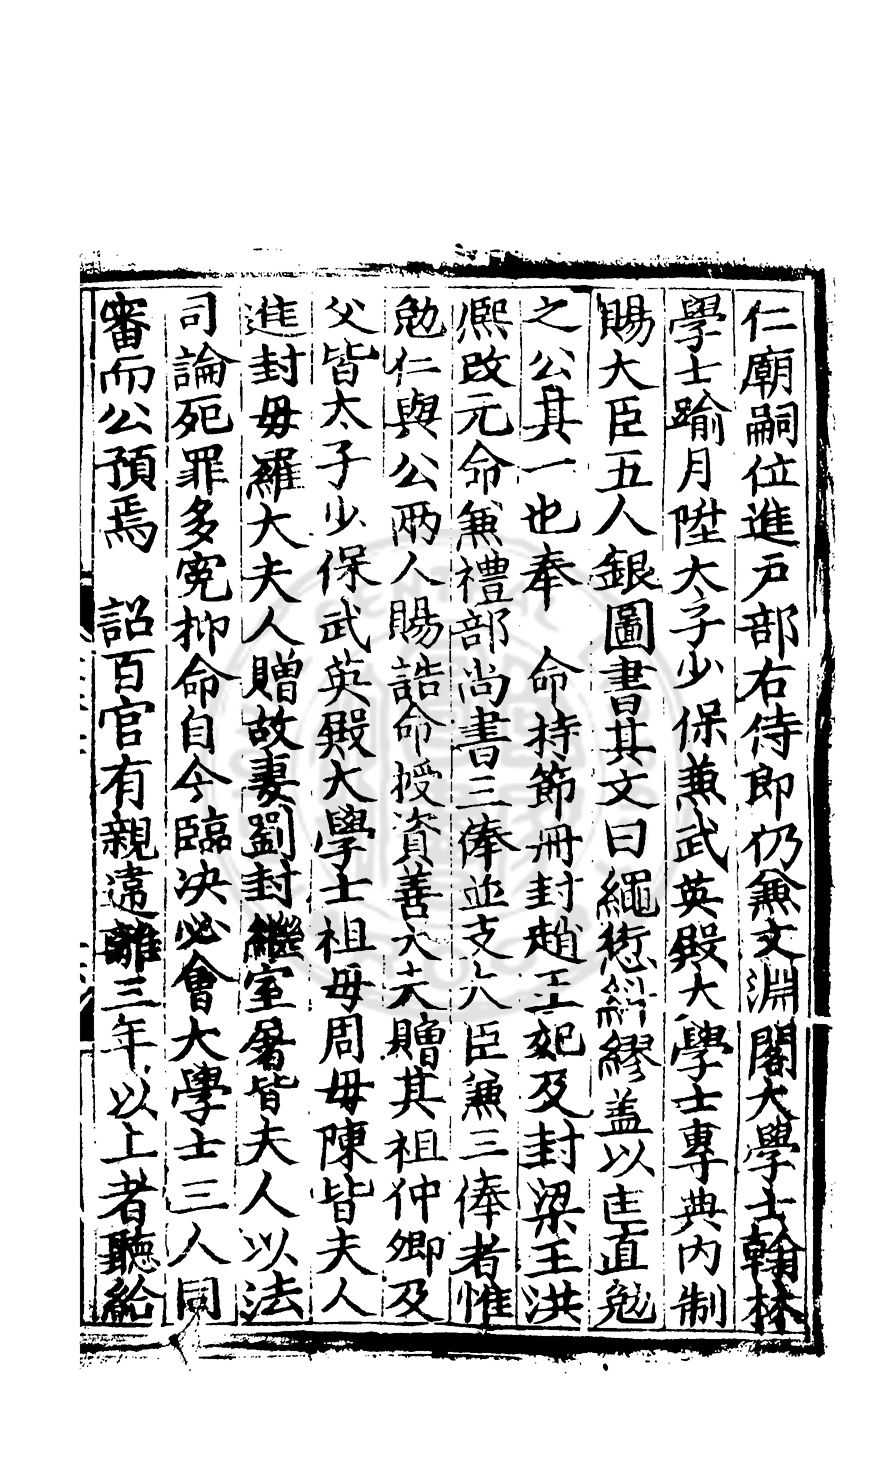 仁廟嗣位進戶部右侍郎仍兼文淵閣大學士翰林
學士踰月陞太子少保兼武英殿大學士專典內制
賜大臣五人銀圖書其文曰繩愆糾繆盖以匡直勉
之公其一也奉　命持節冊封趙王妃及封梁王洪
熈改元命兼禮部尚書三俸並支大臣兼三俸者惟
勉仁與公兩人賜誥命授資善大夫贈其祖仲卿及
父皆太子少保武英殿大學士祖母周母陳皆夫人
進封母羅大夫人贈故妻劉封繼室屠皆夫人以法
司論死罪多寃抑命自今臨决必會大學士三人同
審而公預焉　詔百官有親遠離三年以上者聽給